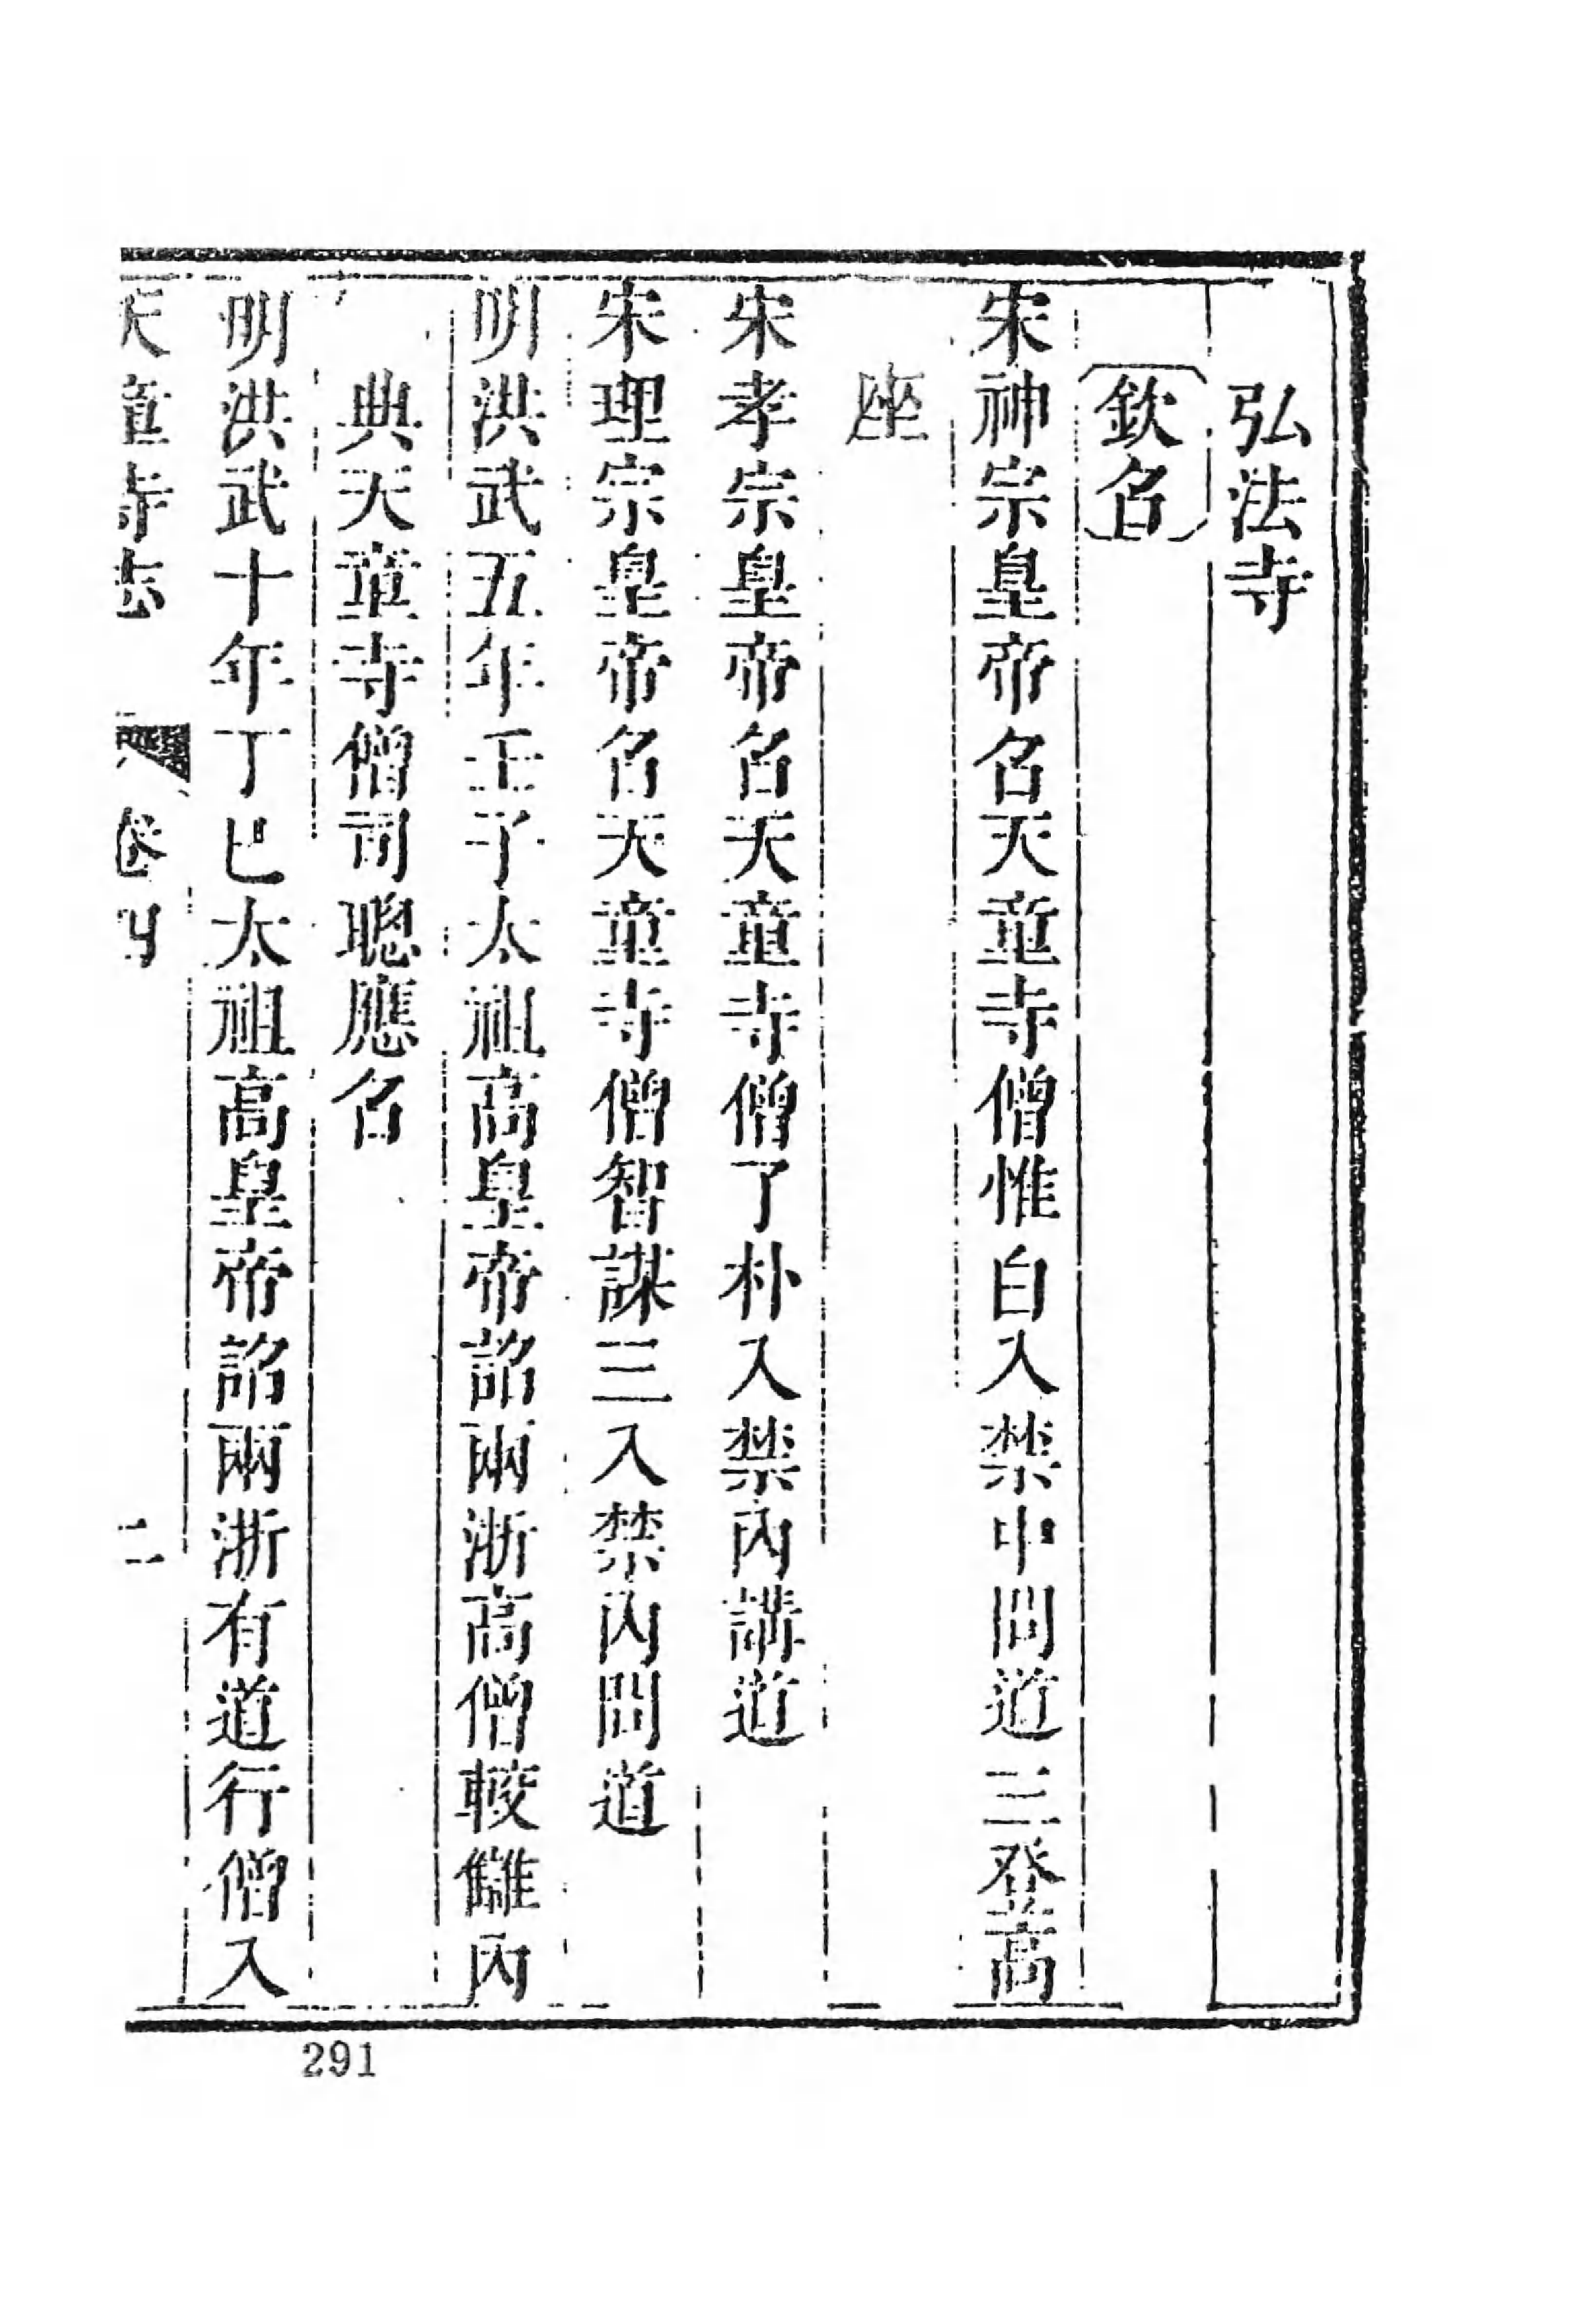 弘法寺
欽召
宋神宗皇帝召天童寺僧惟白入禁中問道三登高
座
宋孝宗皇帝召天童寺僧了朴入禁內講道
宋理宗皇帝召天童寺僧智謀三入禁內問道
明洪武五年壬子太祖高皇帝詔兩浙高僧較讎內
典天童寺僧司聰應召
明洪武十年丁巳太祖高皇帝詔兩浙有道行僧入
天童寺志 卷四 二
291